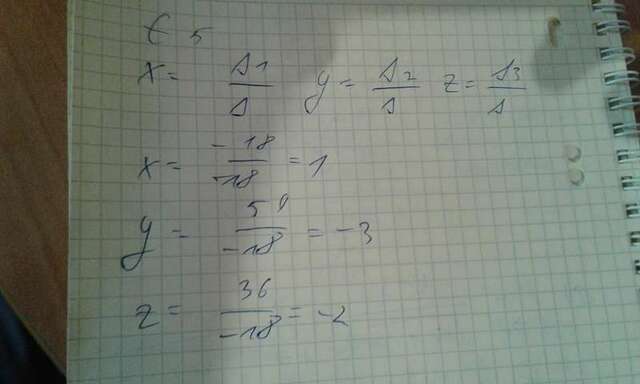 x = Δ1/Δ y = Δ2/Δ z = Δ3/Δ
x = -18/-18 = 1
y = 54/-18 = -3
z = 36/-18 = -2